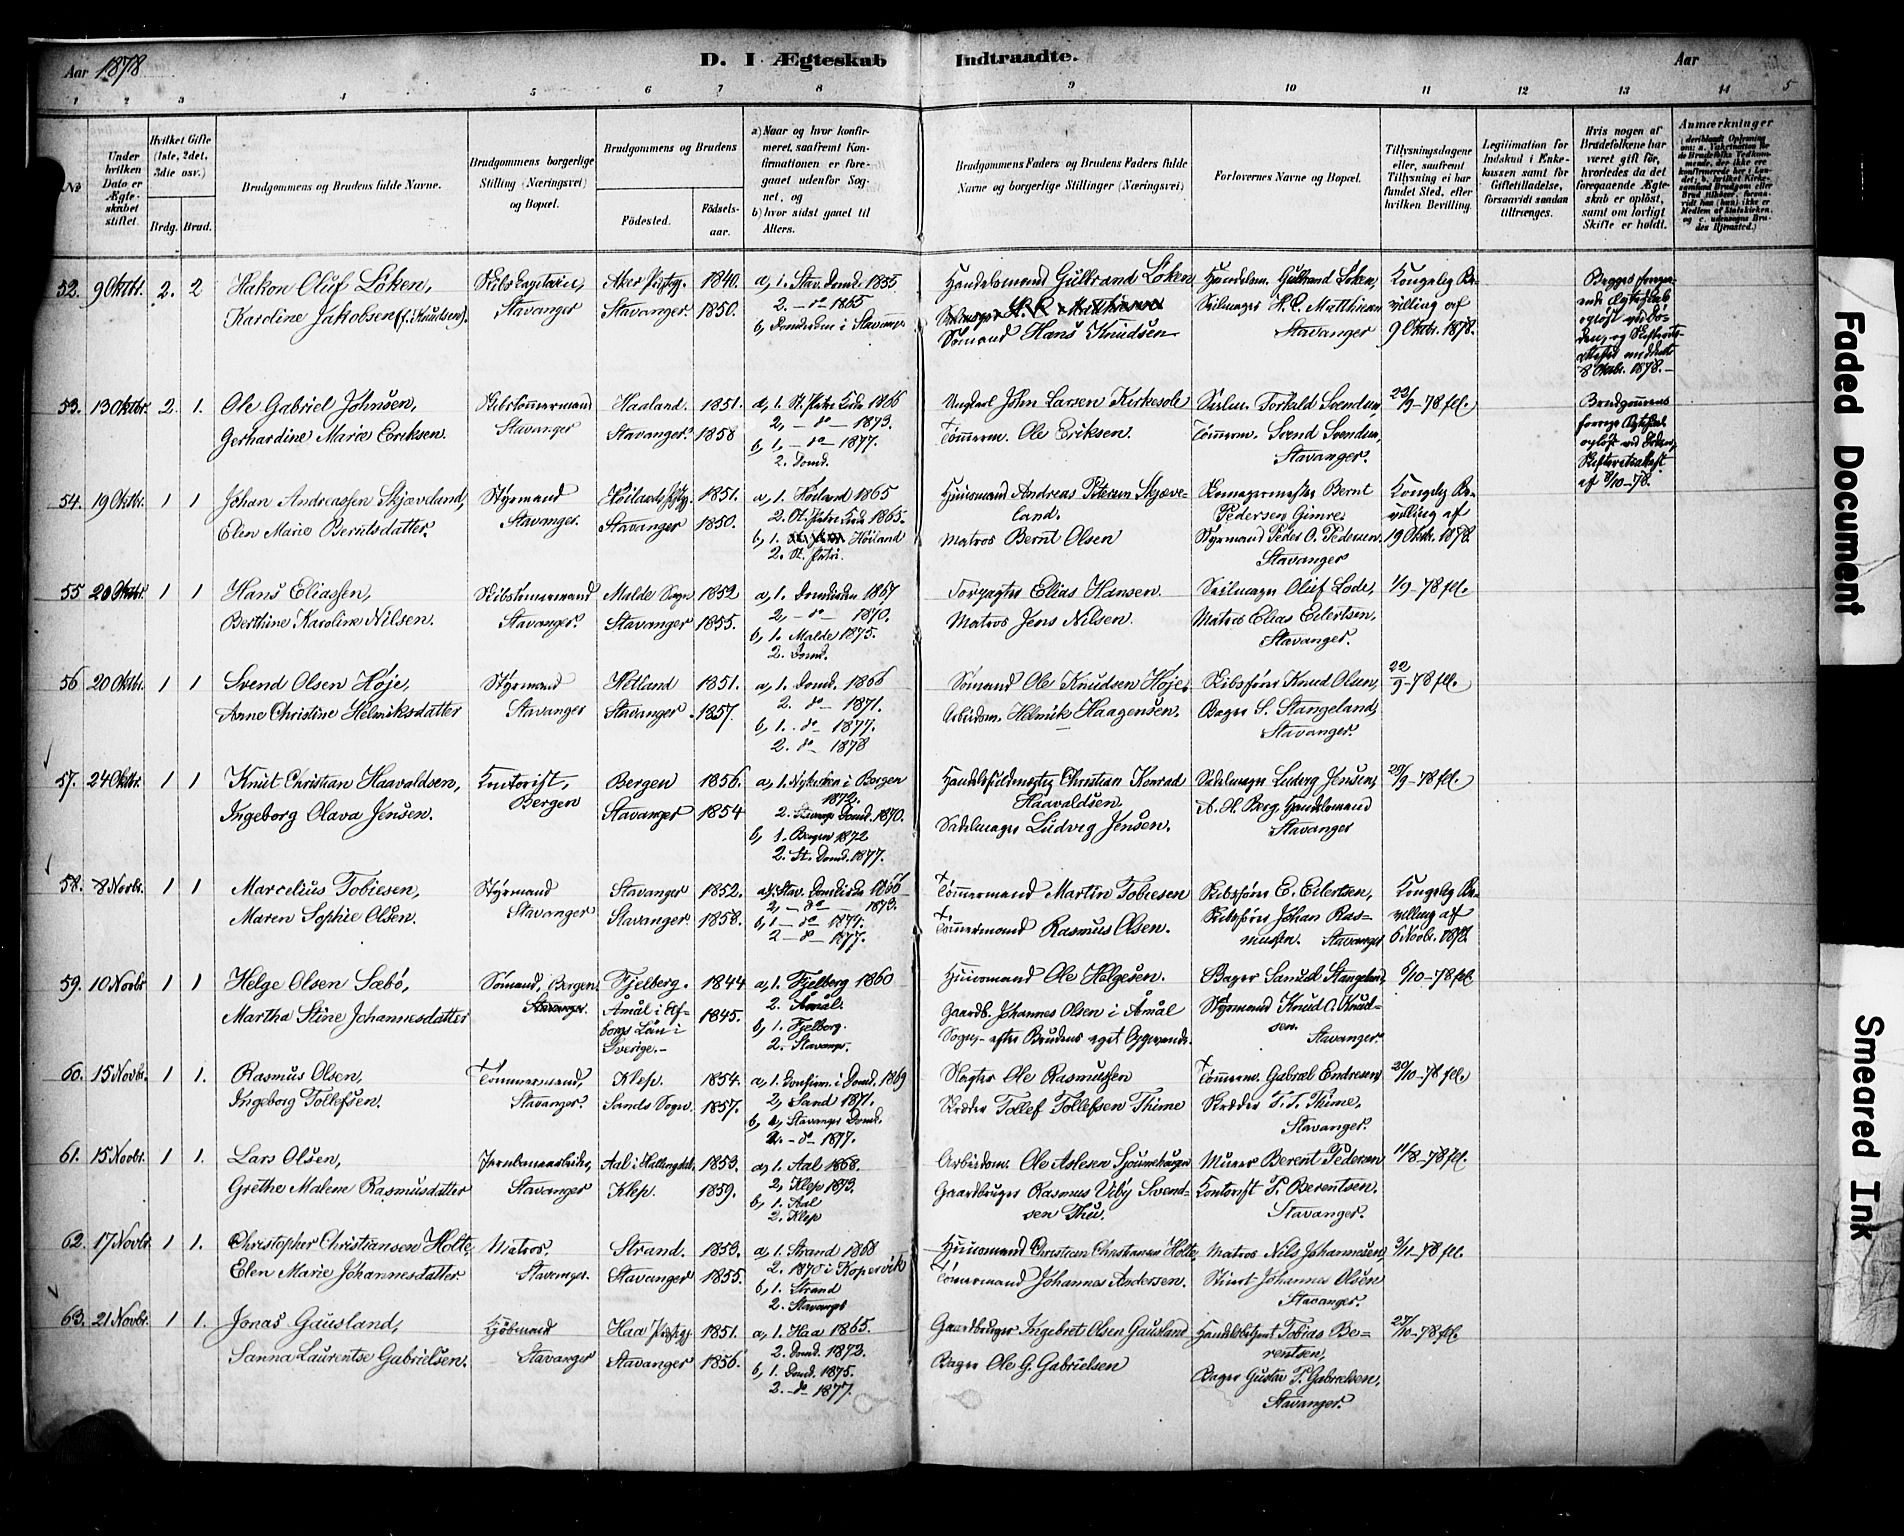 Aar 1878
D. I Ægteskab Indtraadte.
Aar
5
1 2 3 4 5 6 7 8 9 10 11 12 13 14
No
Under hvilken Dato er Ægteskabet stiftet.
Hvilket Gifte (1ste, 2det, 3die osv.)
Brdg. Brud.
Brudgommens og Brudens fulde Navne.
Brudgommens borgerlige Stilling (Næringsvei) og Bopæl.
Brudgommens og Brudens
Födested.
Födselsaar.
a) Naar og hvor konfirmeret, saafremt Konfirmationen er foregaaet udenfor Sognet, og
b) hvor sidst gaaet til Alters.
Brudgommens Faders og Brudens Faders fulde Navne og borgerlige Stillinger (Næringsvei)
Forlovernes Navne og Bopæl.
Tillysningsdagene eller, saafremt Tillysning ei har fundet Sted, efter hvilken Bevilling.
Legitimation for Indskud i Enkekassen samt for Giftetilladelse, forsaavidt saadan tiltrænges.
Hvis nogen af Brudefolkene har været gift før, hvorledes da det foregaaende Ægteskab er opløst, samt om lovligt Skifte er holdt.
Anmærkninger
52. 9 Oktbr. 2. 2 Hakon Oluf Löken, Skibs Capitain, Aker Prstgj. 1840. a, 1. Stav. Domk. 1855 Handelsmand Gulbrand Löken Handelsm. Gulbrand Löken, Kongelig Be-
Kardine Jakobsen (f. Knudsen). Stavanger Stavanger 1850. 2. – do 1865 Seilmager H. C. Matthiesen villing af
b, Domk. i Stavanger Sömand Hans Knudsen Stavanger 9 Oktbr. 1878.
Begges forega-
ende Ægteskab
opløst ved Dö-
den, og Skifterets-
8 Oktbr. 1878.
53. 13 Oktbr. 2. 1. Ole Gabriel Johnsen, Skibstömmermand Haaland. 1851. a, 1. St. Petri Kirke 1866 Ungkarl John Larsen Kirkesole Seilm. Torkald Svendsen 22/9–78 fl.
Gerhardine Marie Eriksen. Stavanger Stavanger. 1858 2, – do – 1873. Tömmerm. Ole Eriksen. Tömmerm. Svend Svendsen,
b, 1. – do – 1877. Stavanger.
2. Domk.
Brudgommens
forrige Ægteskab
opløst ved Döden,
Skifteretsattest
af 8/10–78.
54. 19 Oktbr. 1 1 Johan Andreassen Skjæveland, Styrmand Höilands Prstgj. 1851. a, 1. Höiland 1865 Huusmand Andreas Petersen Skjæve- Bernt Kongelig Be-
Elen Marie Berntsdatter. Stavanger. Stavanger 1850. 2. St. Petri Kirke 1865. land. Pedersen Gimre villing af
b, 1. Höiland Matros Bernt Olsen Styrmand Peder O. Pedersen 19 Oktbr. 1878
2. St. Petri. Stavanger
55 20 Oktbr. 1 1 Hans Eliassen, Skibstömmermand Malde Sogn 1852 a, 1. Domkirken 1867 Forpagter Elias Hansen. Seilmager Oluf Lode, 1/9–78 fl.
Berthine Karoline Nilsen. Stavanger. Stavanger 1855. 2, – do – 1870. Matros Jens Nilsen. Matros Elias Eilertsen,
b, 1. Malde 1875. Stavanger.
2. Domk.
56 20 Oktbr. 1 1 Svend Olsen Höje, Styrmand Hetland 1851. a, 1. Domk. 1866 Sömand Ole Knudsen Höje. Skibsförer Knud Olsen, 22/9–78 fl.
Anne Christine Helmiksdatter Stavanger Stavanger. 1857. 2. do – 1871. Arbeidsm. Helmik Haagensen. Bager S. Stangeland,
b, 1. do – 1877. Stavanger.
2. do – 1878
57. 24 Oktbr. 1 1 Knut Christian Haavaldsen, Kontorist, Bergen 1856. a, 1. Nykirken i Bergen Christian Konrad Sadelmager Ludvig Jensen, 29/9–78 fl.
Ingeborg Olava Jensen. Bergen Stavanger 1854 1872. Haavaldsen A. H. Berg, Handelsmand
2. Domk. 1870. Sadelmager Ludvig Jensen. Stavanger
b, 1. Bergen 1872
2. St. Domk. 1877.
58. 8 Novbr. 1 1 Marcelius Tobiesen, Styrmand Stavanger 1852. a, 1. Stav. Domkirke 1866 Tömmermand Martin Tobiesen Skibsförer E. Eilertsen, Kongelig Be-
Maren Sophie Olsen. Stavanger Stavanger 1858. 2, – do – 1873. Tömmermand Rasmus Olsen. Skibsförer Johan Ras- villing af
b, 1 – do – 1877. mussen. Stavanger 6 Novbr. 1878.
2 – do – 1877.
59. 10 Novbr 1 1 Helge Olsen Sæbö, Sömand, Bergen, Fjelberg. 1844 a, 1. Fjelberg 1860 Huusmand Ole Helgesen. Bager Samuel Stangeland, 6/10–78 fl.
Martha Stine Johannesdatter Stavanger. Åmål i Elf- 1845. 2. Åmål. Gaardb. Johannes Olsen i Åmål Styrmand Knud O. Knud-
borgs Län i b, 1. Fjelberg. Sogn, – efter Brudens eget Opgivende. sen.
Sverige.– 2. Stavanger. Stavanger.
60. 15 Novbr. 1 1. Rasmus Olsen, Tömmermand, Klep. 1854. a, 1. Domk. 1869 Slagter Ole Rasmussen Tömmerm. Gabriel Endresen 20/10–78 fl.
Ingeborg Tollefsen. Stavanger. Sands Sogn 1857. 2, Sand 1871. Skræder Tollef Tollefsen Thime Skræder T. T. Thime,
b, 1, Stavanger Domk. Stavanger.
2. – do – 1877.
61. 15 Novbr. 1 1. Lars Olsen, Jernbanearbeider, Aal i Hallingdal, 1853. a, 1. Aal 1868. Arbeidsm. Ole Aslesen Murer Berent Pedersen 11/8–78 fl.
Grethe Malene Rasmusdatter Stavanger Klep. 1859. 2, Klep 1873. Gaardbruger Rasmus Svend- Kontorist P. Berentsen.
b, 1. Aal sen Thu. Stavanger.
2. Klep
62. 17 Novbr 1 1. Christopher Christiansen Holte, Matros. Strand. 1853. a, 1. Strand 1868 Huusmand Christian Christiansen Holte, Matros Nils Johannesen, 3/11–78 fl
Elen Marie Johannesdatter Stavanger. Stavanger 1855. 2. 1870 i Kopervik Tömmermand Johannes Andersen. Johannes Olsen
b, 1. Strand Stavanger.
2. Stavanger
63. 21 Novbr. 1 1. Jonas Gausland, Kjöbmand Haa Prstgj. 1851. a, 1. Haa 1865. Gaardbruger Ingebret Olsen Gausland Tobias Be- 27/10–78 fl.
Sanna Laurentse Gabrielsen. Stavanger Stavanger 1856. 2. Domk. 1872. Bager Ole G. Gabrielsen rentsen,
b, 1. Domk. 1875. Bager Gustav P. Gabrielsen,
2. – do – 1877. Stavanger.
Faded Document
Smeared Ink